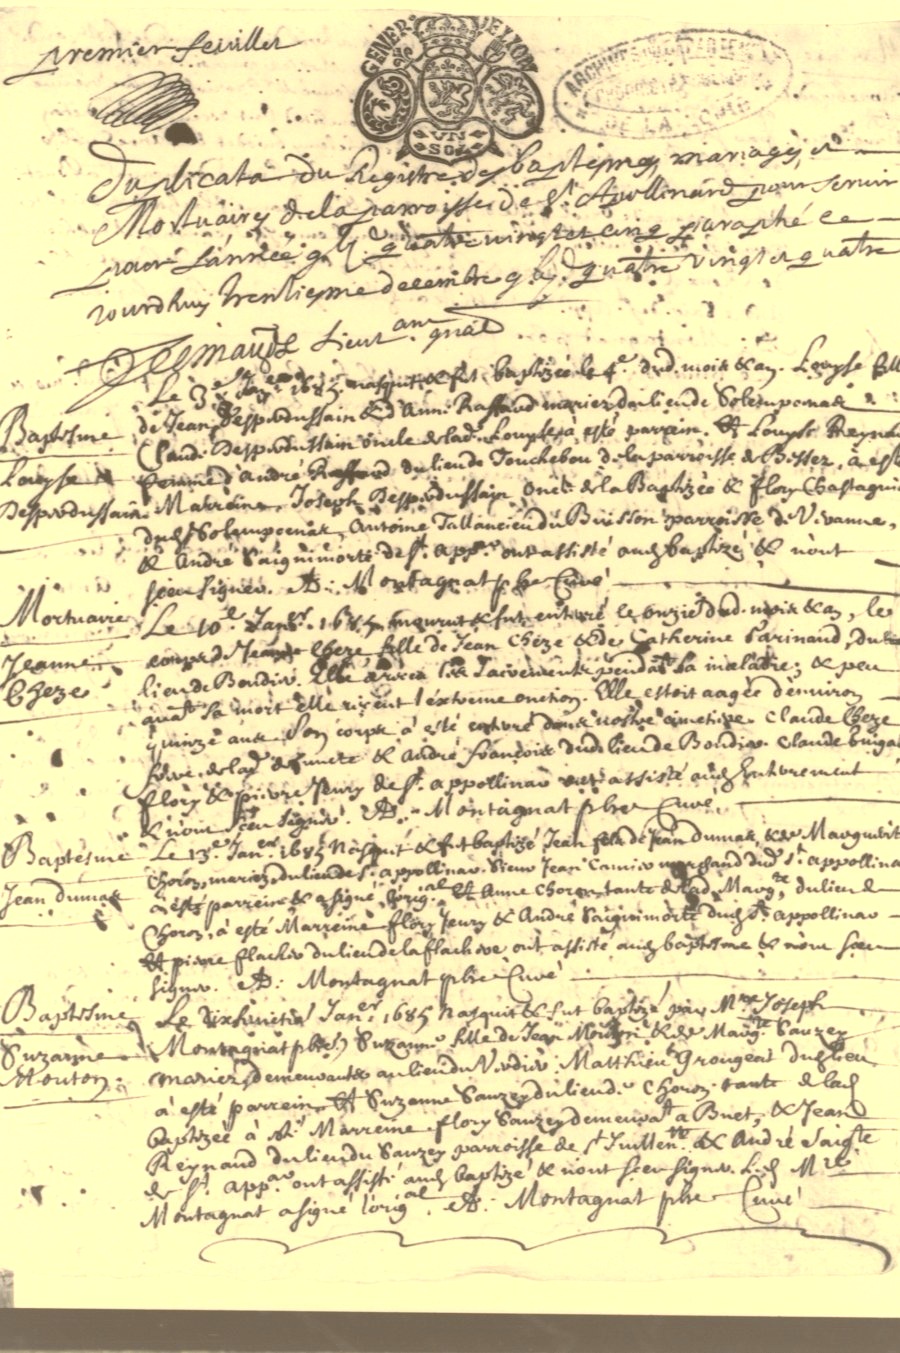 premier feuillet
GENER DE LYON
UN SOL
ARCHIVES DEPARTEMENTALES
DE LA
Duplicata du Registre des baptesmes, mariages, et
Mortuaires de la parroisse de St Apollinard pour servir
pour L'année gbjc quatre vingt et cinq paraphé ce
jourdhuy trentiesme decembre gbjc quatre vingt et quatre
Lieut gnal
Le 3e Janer 1685 nasquit & fut baptizée le 4e dud. mois & an. Louyse fille
de Jean Despondussain & d'Ann. Raffard mariez du lieu de Solempcenas
Baptesme
Claud. Despondussain oncle de lad. Louyse à esté parrain. Et Louyse Reynau
Louyse
femme d'André Raffard du lieu de Touchebou de la parroisse de Bessez, à esté
Despondussain
Marreine. Joseph Despondussain oncle de la Baptizée & flory Chastagnie
dud. Solempcenas, Antoine Tallancieu du Buisson parroisse de Vivanne,
& André Saignimorte de St app. ont assisté aud. baptizé & n'ont
sceu signer. Montagnat pbre Curé
Mortuaire
Le 10e Janer 1685 mourut & fut enterré le onzie dud. mois & an, le
Jeanne
corps d. Jeanne Cheze fille de Jean Cheze & de Catherine Parinaud, du
Cheze
lieu de Boudin. Elle a receu les Sacrements pendat sa maladie; & peu
avat sa mort elle receut l'extreme onction. Elle estoit aagée d'environ
quinze ans Son corps à esté enterré dans nostre cimetiere. Claude Cheze
frere de lad. defuncte & André françois dud. lieu de Boudin. Claude
flory & pierre Jeury de St appollinar ont assisté aud. Enterrement
& n'ont sceu signer. Montagnat pbre Curé.
Baptesme
Le 13e Janer 1685 Nasquit & fut baptizé Jean fils de Jean dumas & de Marguerite
Jean dumas
Choron, mariez du lieu de St appollinar. Sieur Jean Camier marchand dud. St appollina
à esté parrein & a signé l'origal Et Anne Choron, tante de lad. Margte, du lieu de
Choron, à esté Marreine. flory Jeury & André Saignimorte dud. St appollinar
Et pierre flachier du lieu de la flachere ont assisté aud. baptesme & n'ont sceu
signer. Montagnat pbre Curé
Baptesme
Le dixhuictie Janer 1685 Nasquit & fut baptizé par Mre Joseph
Suzanne
Montagnat pbre Suzanne fille de Jean Mouton & de Margte Sauzey
Mouton
mariez, demeurants au lieu du Verdier. Matthieu Grougeas dud. lieu
à esté parrein, Et Suzanne Sauzey du lieu d. Choron tante de lad.
baptizée à esté Marreine. flory Sauzey demeurat a Bnet, & Jean
Reynaud du lieu du Sauzey parroisse de St Juillen & André Saigte
de St app. ont assisté aud. baptizé & n'ont sceu signer. Led. Mre
Montagnat a signé l'origal. Montagnat pbre Curé